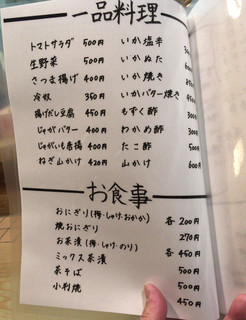 一品料理
トマトサラダ 500円
生野菜 500円
さつま揚げ 400円
冷奴 350円
揚げだし豆腐 450円
じゃがバター 400円
じゃがいも唐揚 400円
ねぎ山かけ 420円
いか塩辛
いかぬた
いか焼き
いかバター焼き
もずく酢 300円
わかめ酢
たこ酢
山かけ 600円
お食事
おにぎり(梅・しゃけ・おかか) 各200円
焼おにぎり 270円
お茶漬(梅・しゃけ・のり) 各450円
ミックス茶漬 500円
茶そば 500円
450円